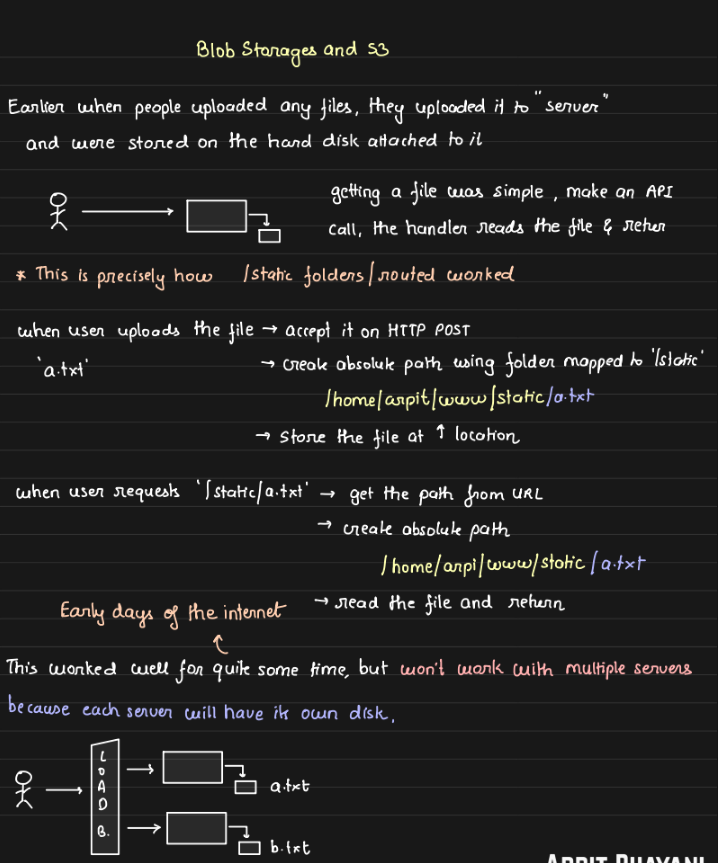 Blob Storages and S3
Earlier when people uploaded any files, they uploaded it to "server"
and were stored on the hard disk attached to it
getting a file was simple, make an API
call, the handler reads the file & retur
* This is precisely how /static folders/routed worked
when user uploads the file → accept it on HTTP POST
'a.txt' → create absolute path using folder mapped to '/static'
/home/arpit/www/static/a.txt
→ store the file at ↑ location
when user requests '/static/a.txt' → get the path from URL
→ create absolute path
/home/arpi/www/static/a.txt
→ read the file and return
Early days of the internet
This worked well for quite some time, but won't work with multiple servers
because each server will have its own disk.
LOAD B.
a.txt
b.txt
ARPIT BHAYANI